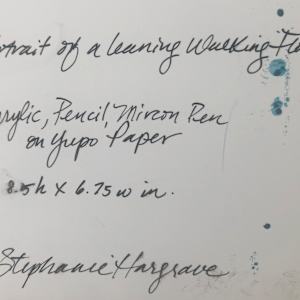 otrait of a Leaning Walking Fl
rylic, Pencil, Mircon Pen
on Yupo Paper
8.5h x 6.75 w in.
Stephanie Hargrave